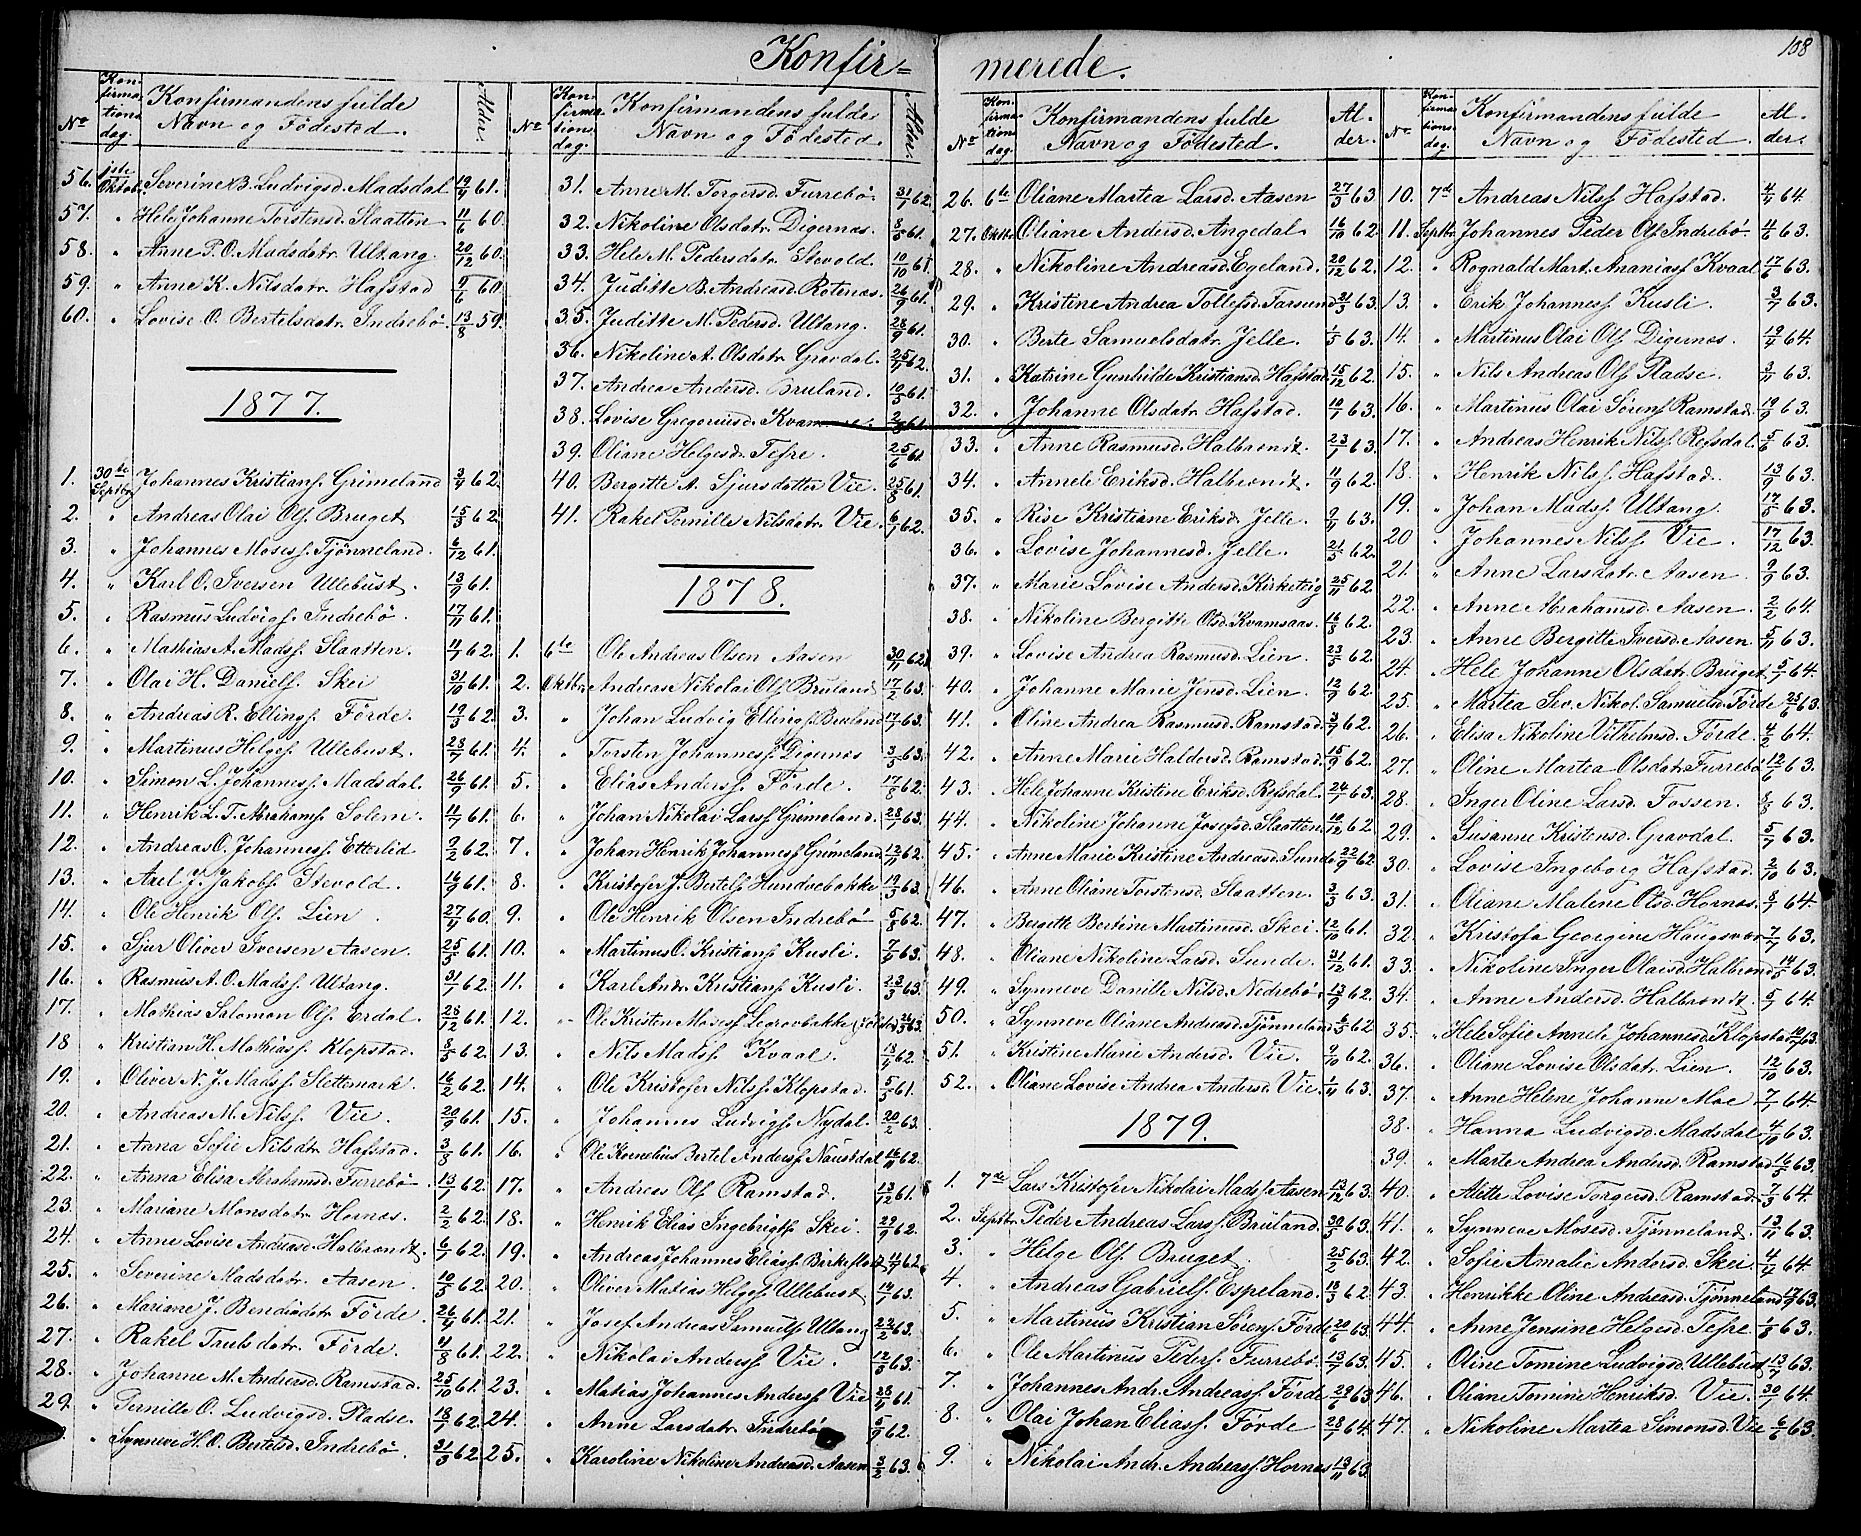 Konfir= merede.
108
No
Konfirmations dag.
Konfirmandens fulde Navn og Födested.
Alder.
56. 1ste Oktob. Severine B. Ludvigsd. Madsdal 19/4 61.
57. " Hele Johanne Torstensd. Slaatten 11/6 60.
58. " Anne P. O. Madsdatr. Ultang. 20/12 60.
59. " Anne K. Nilsdatr. Hafstad 9/6 60
60. " Lovise O. Bertelsdatr. Indrebö 13/8 59.
1877.
1. 30te Septbr. Johannes Kristians. Grimeland 3/4 62.
2. " Andreas Olai Ols. Bruget 15/3 62.
3. " Johannes Moses. Tjönneland. 6/12 61.
4. " Karl O. Iversen Ullebust. 13/9 61.
5. " Rasmus Ludvigs. Indrebö. 17/11 61.
6. " Mathias A. Mads. Slaatten. 11/7 62.
7. " Olai H. Daniels. Skei 31/10 61.
8. " Andreas R. Ellings. Förde. 19/3 62.
9. " Martinus Helges. Ullebust. 23/7 61.
10. " Simon L. Johanness. Madsdal. 26/9 61.
11. " Henrik L. T. Abrahams. Solem. 11/7 61.
12. " Andreas O. Johanness. Etterlid 9/2 62.
13. " Axel J. Jakobs. Stevold. 16/9 61.
14. " Ole Henrik Ols. Lien. 27/4 60.
15. " Sjur Oliver Iversen Aasen. 25/5 61.
16. " Rasmus A. O. Mads. Ultang. 31/1 62.
17. " Mathias Salomon Ols. Erdal. 28/12 61.
18 " Kristian H. Mathias. Klopstad. 8/5 62.
19. " Oliver N. J. Mads. Slettemark. 16/2 62.
20. " Andreas M. Nils. Vie. 20/9 61.
21. " Anna Sofie Nilsdtr. Hafstad. 3/8 61.
22. " Anna Elisa Abrahamsd. Furrebö 13/1 62.
23. " Mariane Monsdatr. Hornes. 2/2 62.
24. " Anne Lovise Andreasd. Halbrendt. 6/1 62.
25. " Severine Madsdatr. Aasen. 10/5 62
26. " Mariane J. Bendixdtr. Förde. 26/4 61.
27. " Rakel Paulsdatr. Förde. 4/8 61.
28. " Johanne M. Andreasd. Ramstad. 25/10 61.
29. " Pernille O. Ludvigsd. Pladse. 18/7 62.
" Synneve H. O. Bertelsd. Indrebö. 31/3 62
No
Konfirmations dag.
Konfirmandens fulde Navn og Födested.
Alder.
31. Anne M. Torgersd. Furrebö. 31/7 62.
32. Nikoline Olsdatr. Digernæs. 8/5 61.
33. Hele M. Pedersdatr. Stevold. 10/10 61.
34. Juditte B. Andreasd. Rotenæs. 26/9 61.
35. Juditte M. Pedersd. Ultang. 28/9 61.
36. Nikoline A. Olsdatr. Gravdal. 25/7 62.
37. Andrea Andersd. Bruland. 10/5 61.
38. Lovise Gregoriusd. Kvammene. 2/8 61.
39. Oliane Helgesd. Tefre. 25/6 61
40. Bergitte A. Sjursdatter Vie. 25/8 61.
41. Rakel Pernille Nilsdatr. Vie. 6/7 62.
1878.
1. 6te Ole Andreas Olsen Aasen 30/11 62.
2. Oktbr. Andreas Nikolai Ols. Bruland 17/2 63.
3. " Johan Ludvig Ellings. Bruland 17/7 63.
4. " Torsten Johanness. Digernæs 3/5 63.
5. " Elias Anders. Förde. 17/8 62.
6. " Johan Nikolai Lars. Grimeland. 28/7 63.
7. " Johan Henrik Johanness. Grimeland 12/11 62.
8. " Kristofer J. Bertels. Hundvebakke 19/3 63.
9. " Ole Henrik Olsen Indrebö 5/8 62.
10. " Martinus O. Kristians. Kusli. 7/4 63.
11. " Karl Andr. Kristians. Kusli. 23/3 63.
12. " Ole Kristen Moses. Legrovbakke (Förde) 26/3 63.
13. " Nils Mads. Kvaal. 13/9 62.
14. " Ole Kristofer Nils. Klopstad. 5/5 61.
15. " Johannes Ludvigs. Nydal. 20/2 63.
16. " Ole Kornelius Bertel Anders. Naustdal 16/11 62.
17. " Andreas Ols. Ramstad. 13/12 61.
18. " Henrik Elias Ingebrigts. Skei. 29/9 62.
19. " Andreas Johannes Elias. Birkeflott 11/7 62.
20. " Oliver Matias Helges. Ullebust 14/1 63.
21. " Josef Andreas Samuels. Ultang 22/2 63.
22. " Nikolai Anders. Vie. 12/3 63.
23. " Matias Johannes Anders. Vie 28/4 61.
24. " Anne Larsdatr. Indrebö 5/9 62.
25. " Karoline Nikoline Andreasd. Aasen 3/2 63.
No
Konfirmations dag.
Konfirmandens fulde Navn og Födested.
Alder.
26. 6te Oliane Martea Larsd. Aasen 27/3 63.
27. Oktbr. Oliane Andersd. Angedal. 16/10 62.
28. " Nikoline Andreasd. Egeland. 20/12 62.
29. " Kristine Andrea Tollefsd. Farsund 21/3 63.
30. " Berte Samuelsdatr. Jelle. 1/5 63.
31. " Katrine Gunhilde Kristiansd. Hafstad 15/12 62.
32. " Johanne Olsdatr. Hafstad. 10/7 63.
33. " Anne Rasmusd. Halbrendt. 23/1 63.
34. " Annele Eriksd. Halbrendt. 11/9 62.
35. " Rise Kristiane Eriksd. Jelle. 9/7 63.
36. " Lovise Johannesd. Jelle. 21/5 62.
37. " Marie Lovise Andersd. Kirketeig 25/11 62.
38. " Nikoline Bergitte Olsd. Kvamsaas. 16/8 62.
39. " Lovise Andrea Rasmusd. Lien. 23/5 62.
40. " Johanne Marie Jensd. Lien. 12/9 62.
41. " Oline Andrea Rasmusd. Ramstad. 3/7 62.
42. " Anne Marie Haldorsd. Ramstad. 15/9 62.
43. " Hele Johanne Kristine Eriksd. Refsdal. 24/1 63.
44. " Nikoline Johanne Josefsd. Slaatten. 10/12 62.
45. " Anne Marie Kristine Andreasd. Sunde 22/9 62.
46. " Anne Oliane Torstensd. Slaatten. 3/3 63.
47. " Bergitte Bertine Martinusd. Skei. 12/10 61.
48. " Oliane Nikoline Larsd. Sunde. 31/12 61.
49. " Synneve Danille Nilsd. Nedrebö. 13/9 62.
50. " Synneve Oliane Andreasd. Tjönneland 6/5 62
51. " Kristine Marie Andersd. Vie. 9/10 62.
52. " Oliane Lovise Andrea Andersd. Vie. 1/11 63.
1879.
1. 7de Lars Kristofer Nikolai Mads. Aasen 13/12 63.
2. Septbr. Peder Andreas Lars. Bruland. 30/3 63.
3. " Helge Ols. Bruget. 25/2 63.
4. " Andreas Gabriels. Espeland. 18/3 62.
5. " Martinus Kristian Sörens. Förde 20/6 63.
6. " Ole Martinus Peders. Furrebö. 13/7 63.
7. " Johannes Andr. Andreass. Förde 29/1 63
8. " Olai Johan Elias. Förde 28/1 64.
9. " Nikolai Andr. Andreass. Hornes 13/11 63.
No.
Konfirmationsdag.
Konfirmandens fulde Navn og Födested.
Alder.
10. 7de Andreas Nils. Hafstad. 4/4 64.
11. Septbr. Johannes Peder Ols. Indrebö 4/6 63.
12. " Rognald Mart. Ananias. Kvaal 17/6 63.
13. " Erik Johanness. Kusli. 3/7 63.
14. " Martinus Olai Ols. Digernæs. 19/4 64.
15. " Nils Andreas Ols. Pladse. 3/11 63.
16. " Martinus Olai Sörens. Ramstad. 19/9 63.
17. " Andreas Henrik Nils. Refsdal. 5/6 63.
18. " Henrik Nils. Hafstad. 13/9 63.
19. " Johan Mads. Ultang. 17/5 63.
20 " Johannes Nils. Vie. 17/12 63.
21. " Anne Larsdatr. Aasen. 9/9 63.
22. " Anne Abrahamsd. Aasen. 2/2 64.
23. " Anne Bergitte Iversd. Aasen 5/11 63.
24. " Hele Johanne Olsdatr. Bruget 5/7 64.
25. " Martea Siv. Nikol. Samuelsd. Förde 25/6 63.
26. " Elisa Nikoline Vilhelmsd. Förde. 4/2 64.
27. " Oline Martea Olsdatr. Furrebö 12/6 63.
28. " Inger Oline Larsd. Fossen. 8/3 63.
29. " Susanne Kristensd. Gravdal. 5/7 63.
30. " Lovise Ingeborg Hafstad. 2/10 63.
31. " Oliane Malene Olsd. Hornæs. 8/7 64.
32. " Kristofa Georgine Haugsvær 7/7 63.
33. " Nikoline Inger Olaisd. Halbrendt 14/5 63.
34. " Anne Andersd. Halbrendt. 5/7 64.
35. " Hele Sofie Annele Johannesd. Klopstad 10/9 63.
36. " Oliane Lovise Olsdatr. Lien. 12/10 63.
37. " Anne Helene Johanne Moe 7/1 64.
38. " Hanna Ludvigsd. Madsdal 4/10 63.
39. " Marte Andrea Andersd. Ramstad 16/5 63.
40. " Alette Lovise Torgersd. Ramstad. 7/3 64.
41. " Synneve Mosesd. Tjönneland. 13/11 63.
42. " Sofie Amalie Andersd. Skei. 4/4 64
43. " Henrikke Oline Andreasd. Tjönneland 17/9 63.
44. " Anne Jensine Helgesd. Tefre 1/3 63.
45. " Oline Tomine Ludvigsd. Ullebust 13/7 63.
46. " Oliane Tomine Henriksd. Vie. 30/7 64.
47. " Nikoline Martea Simonsd. Vie 6/6 63.